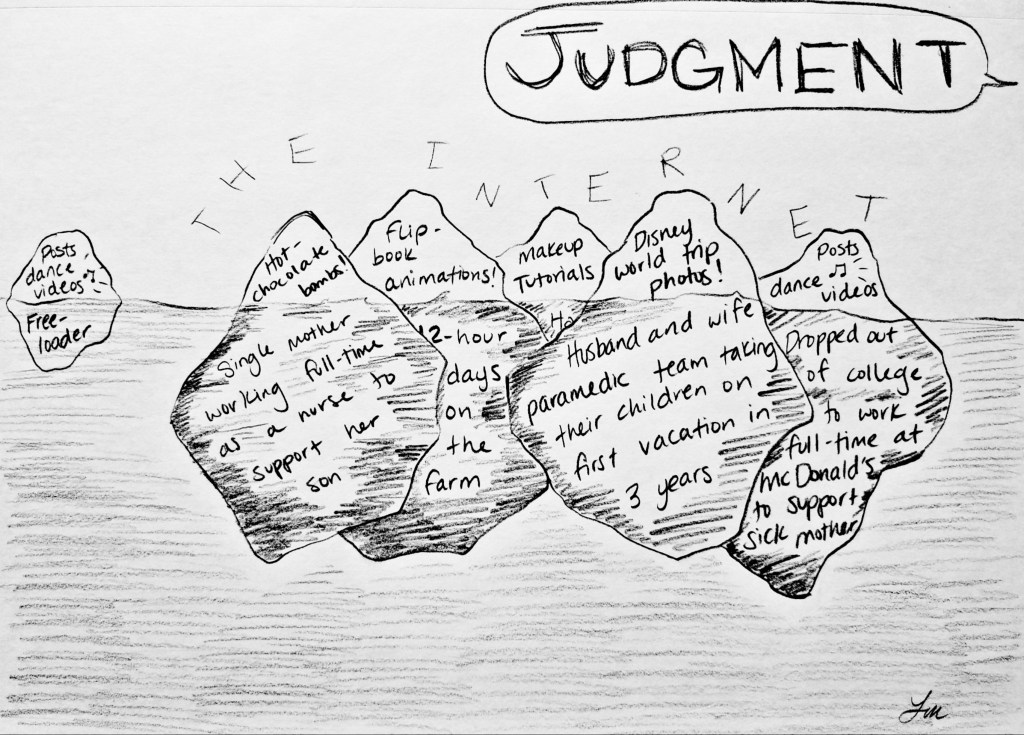 JUDGMENT
THE INTERNET
Posts
dance
videos
Free-
loader
Hot-
chocolate
bombs!
Single mother
working full-time
as a nurse to
support her
son
Flip-
book
animations!
12-hour
days
on
the
farm
Makeup
Tutorials
Ho
Disney
world trip
photos!
Husband and wife
paramedic team taking
their children on
first vacation in
3 years
Posts
dance
videos
Dropped out
of college
to work
full-time at
McDonald's
to support
sick mother